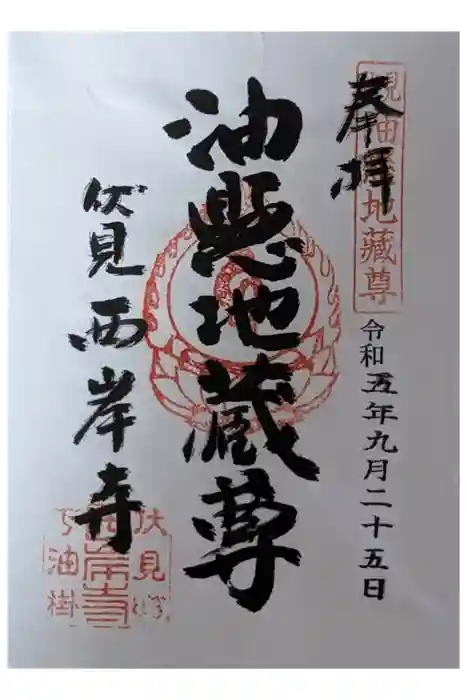 奉拝
地藏尊
令和五年九月二十五日
油懸地蔵尊
伏見西岸寺
伏見
西岸寺
油掛